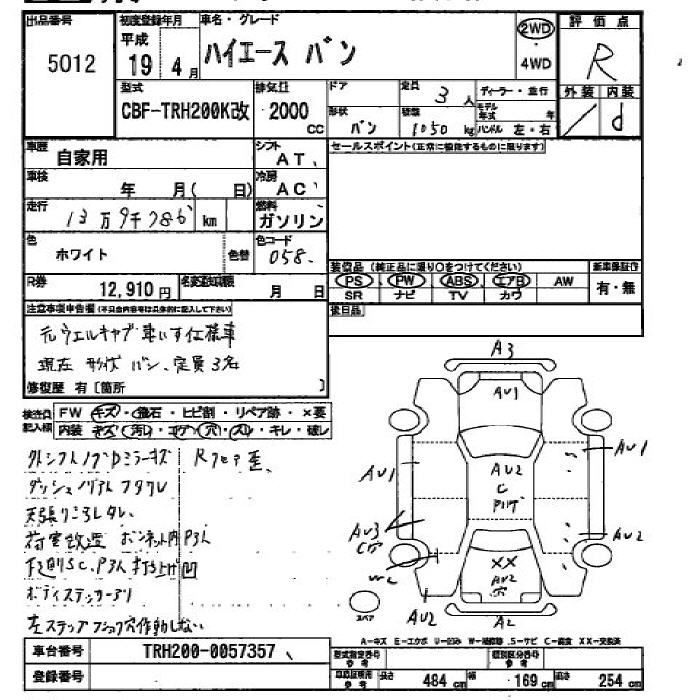 出品番号
5012
初度登録年月
平成
19 4 月
車名・グレード
ハイエース バン
2WD
4WD
評価点
R
外装 内装
/ d
型式
CBF-TRH200K改
排気量
2000
CC
ドア
形状
バン
定員
3 人
積量
1050 kg
ディーラー・並行
モデル年式 年
ハンドル 左・右
車歴
自家用
シフト
AT
車検
年 月( 日)
冷房
AC
走行
13万9千786 km
燃料
ガソリン
色
ホワイト
色替
色コード
058
R券
12,910 円
名変期限
月 日
セールスポイント(正常に機能するものに限ります)
装備品(純正品に限り○をつけてください)
PS PW ABS エアB AW
SR ナビ TV カワ
新車保証書
有・無
後日品
注意事項申告欄
元ウエルキャブ車いす仕様車
現在 形状 バン、定員3名
修復歴 有〔箇所 〕
検査員記入欄
FW キズ・飛石・ヒビ割・リペア跡・×要
内装 キズ・汚レ・コゲ・穴・スレ・キレ・破レ
外シフトノブDミラーキズ
Rフロア歪
天張り
荷室改造 ボンネット内P3人
ボディステッカー
左ステップ
A3
AU1
AU1
AU2
C
AU1
AU3
AU2
XX
AU2
穴
AU2
A2
スペア
A-キズ E-エクボ U-凹み W-補修跡 S-サビ C-腐食 XX-交換済
車台番号
TRH200-0057357
登録番号
型式指定番号
参考
類別区分番号
参考
参考
長さ 484 cm 幅 169 cm 高さ 254 cm